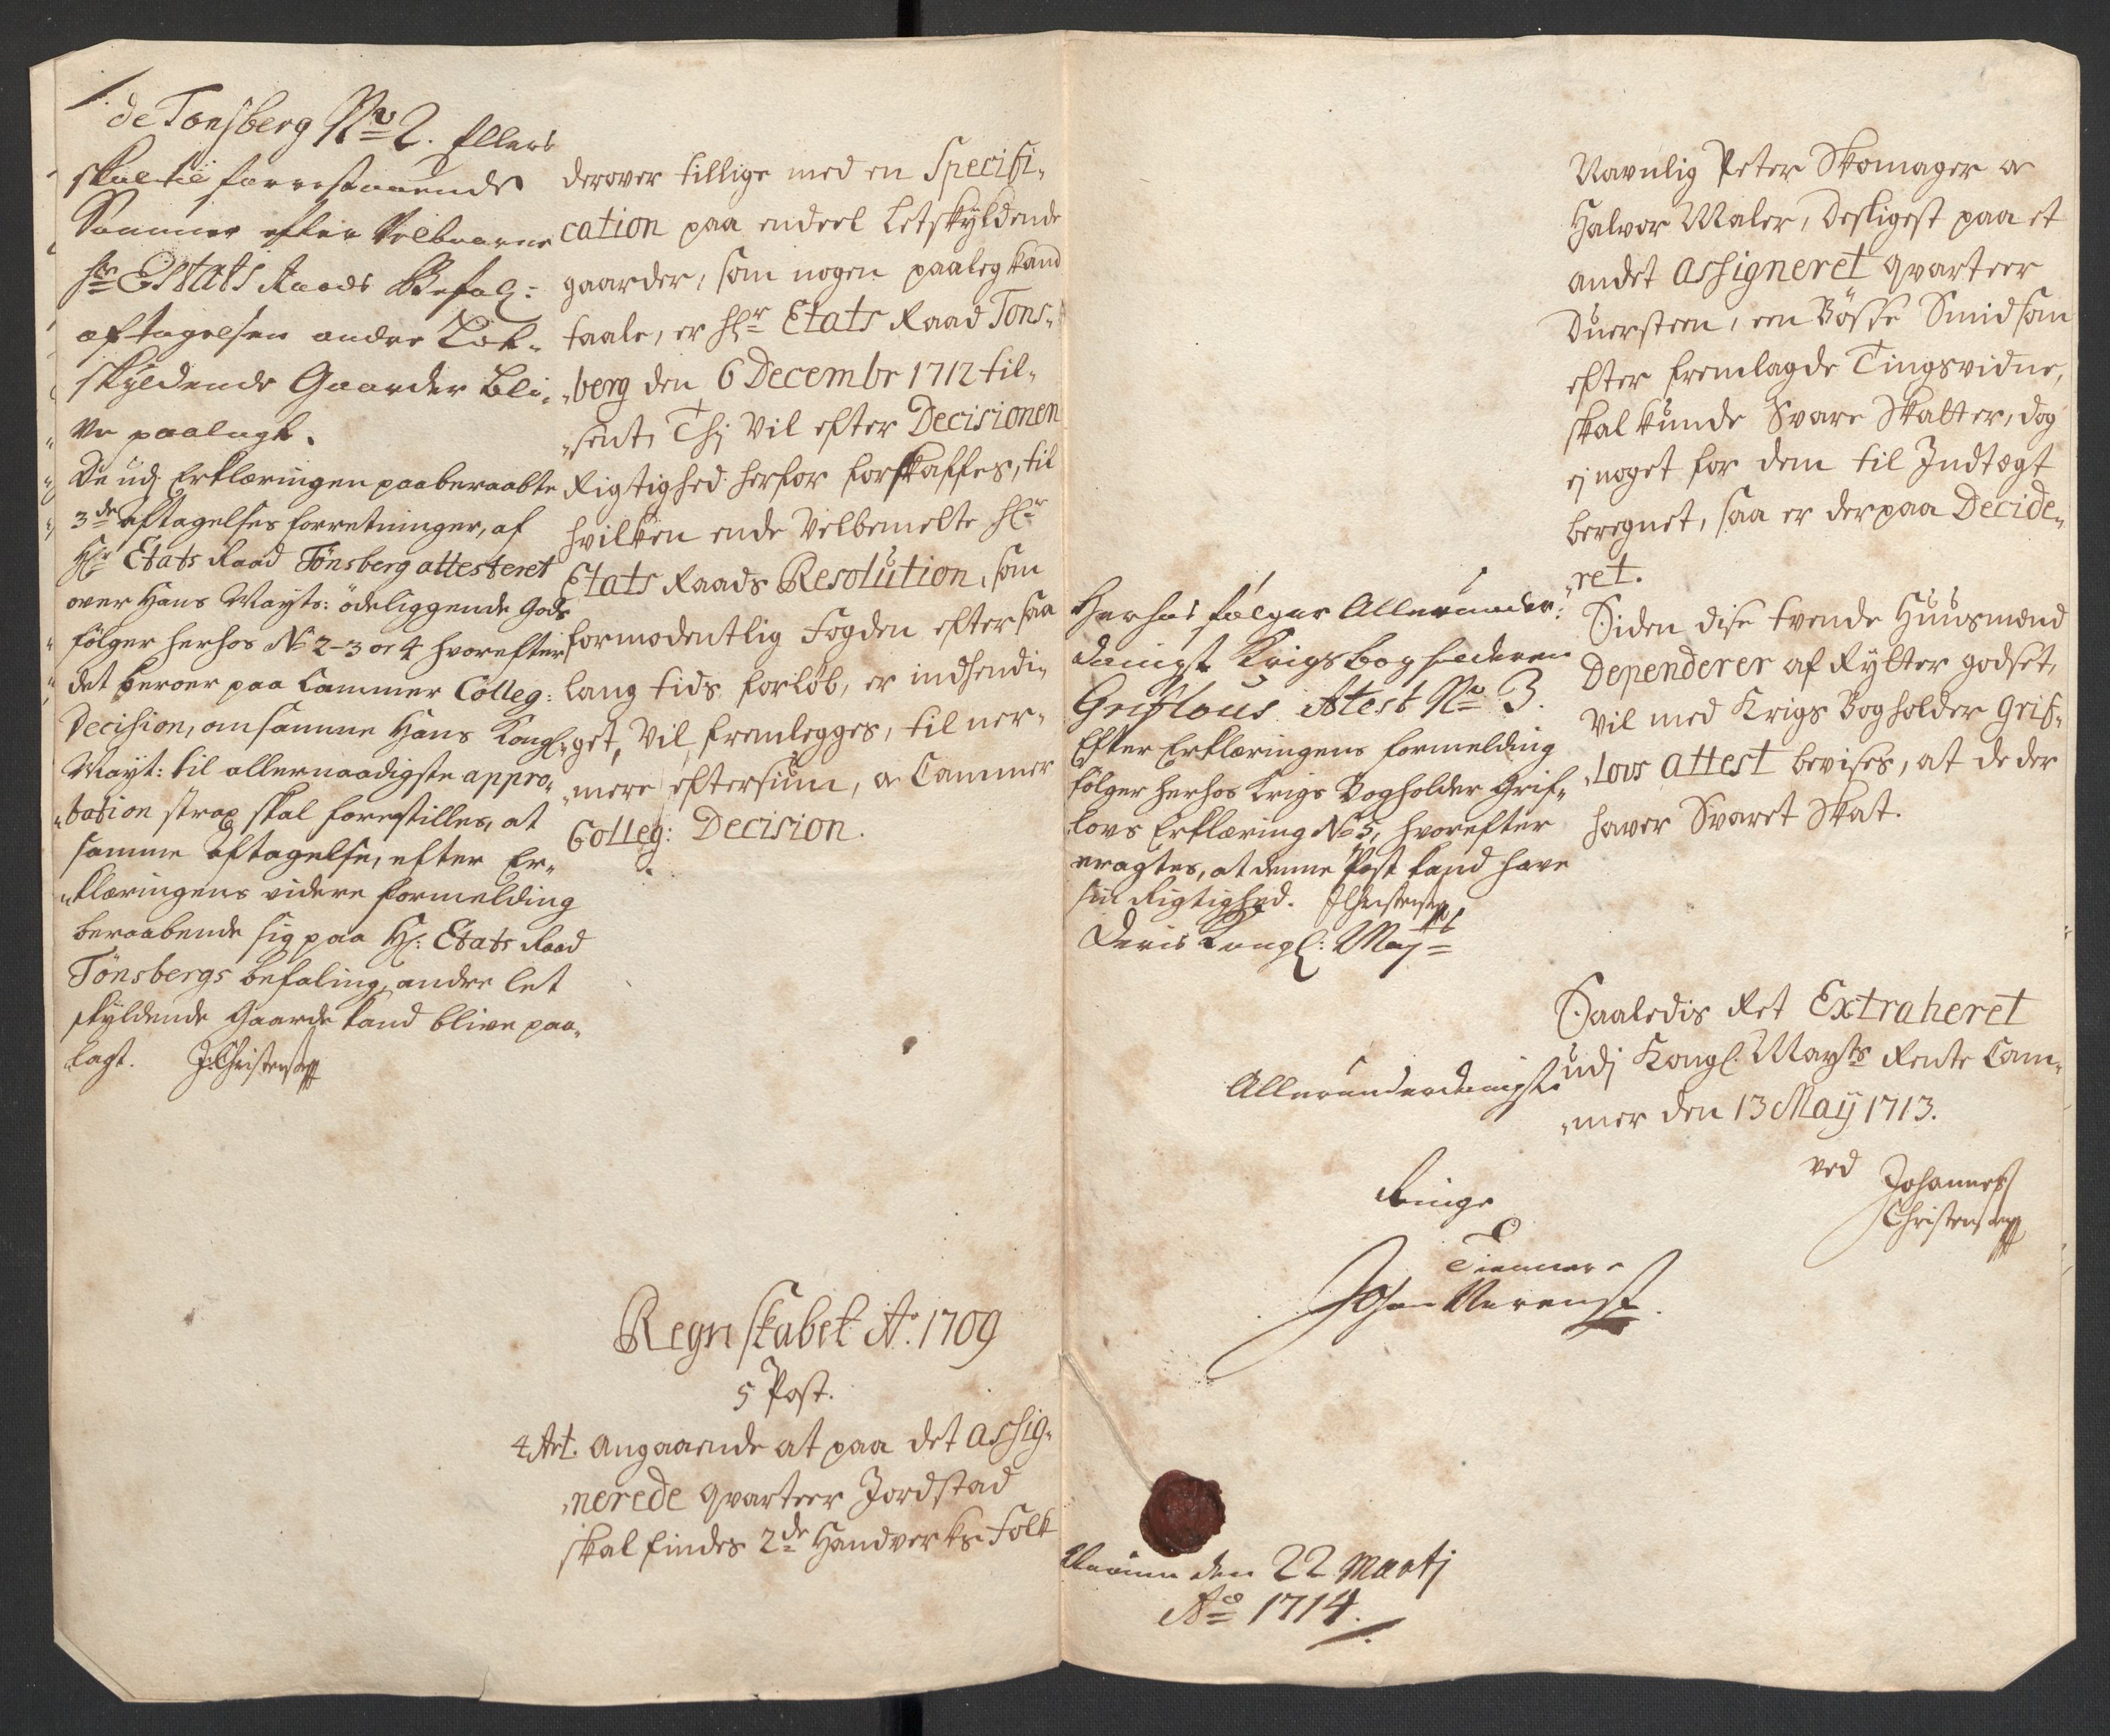 de Tonsberg No 2. Ellers
skal til forrestaaende
Summer efter Velbaarne
Hr Estats Raads Befal:
aftagelsen andre Let-
skyldende Gaarder bli-
ve paalagt.
De udj Erklæringen paaberaabte
3de Aftagelses forretninger, af
Hr Etats Raad Tönsberg attesteret
over Hans Mayts: ödeliggende Gods
fölger herhos No 2-3 og 4 hvorefter
det beroer paa Cammer Colleg:
Decision, om samme Hans Kongl:
Mayt: til allernaadigste appro-
bation strax skal forestilles, at
samme Aftagelse, efter Er-
klæringens videre formelding
beraabende sig paa Hr: Etats Raad
Tönsbergs befaling, andre let
skyldende Gaarde kand blive paa-
lagt. J:Christensen
derover tillige med en Specifi-
cation paa endeel Letskyldende
gaarder, som nogen paaleg kand
taale, er Hr Etats Raad Tons-
berg den 6 Decembr 1712 til-
sent, Thj Vil efter Decisionen
Rigtighed herfor forskaffes, til
hvilken ende Velbemelte Hr
Etats Raads Resolution, som
formodentlig Fogden efter saa
lang tids forløb, er indhendi-
get, Vil fremlegges, til ner-
mere eftersiun, og Cammer
Colleg: Decision.
Regnskabet Ao. 1709
5 Post.
4 Art. Angaaende at paa det assig-
nerede qvarteer Jordstad
skal findes 2de Handverks Folk
Herhos følger Allerunder-
danigst Krigs bogholderen
Grifsous Atest No 3.
Efter Erklæringens formelding
fölger herhos Krigs Bogholder Grif-
lovs Erklæring No 5, hvorefter
eragtes, at denne Post kand have
sin Rigtighed. J Christensen
Deris Kongl: Mayts
Allerunderdanigste
Ringe
Tienner
den 22 Martj
Ao 1714.
Navnlig Peter Skomager og
Halvor Maler, Desligest paa et
andet assigneret qvarteer
Duersteen, een Bösse Smid som
efter fremlagde Tingsvidne,
skal kunde Svare Skatter, dog
ej noget for dem til Indtægt
beregnet, saa er derpaa Decide-
ret.
Siden disse tvende Huusmænd
Dependerer af Rytter godset,
Vil med Krigs Bogholder Grif-
lovs attest bevises, at de der
haver Svaret Skat.
Saaledis Ret Extraheret
udj Kongl. Mayts Rente Cam-
mer den 13 Maij 1713.
ved Johannes
Christensen